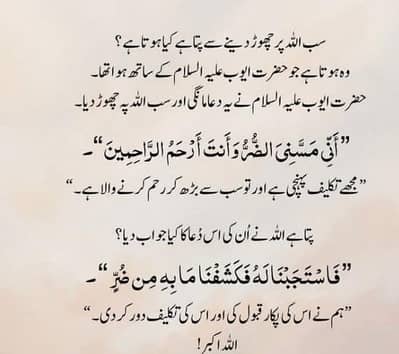 سب اللہ پر چھوڑ دینے سے پتا ہے کیا ہوتا ہے؟
وہ ہوتا ہے جو حضرت ایوب علیہ السلام کے ساتھ ہوا تھا۔
حضرت ایوب علیہ السلام نے یہ دعا مانگی اور سب اللہ پہ چھوڑ دیا۔
”أَنِّي مَسَّنِيَ الضُّرُّ وَأَنتَ أَرْحَمُ الرَّاحِمِينَ“۔
”مجھے تکلیف پہنچی ہے اور تو سب سے بڑھ کر رحم کرنے والا ہے۔“
پتا ہے اللہ نے اُن کی اس دُعا کا کیا جواب دیا؟
”فَاسْتَجَبْنَا لَهُ فَكَشَفْنَا مَا بِهِ مِن ضُرٍّ“۔
”ہم نے اس کی پکار قبول کی اور اس کی تکلیف دور کر دی۔“
اللہ اکبر!